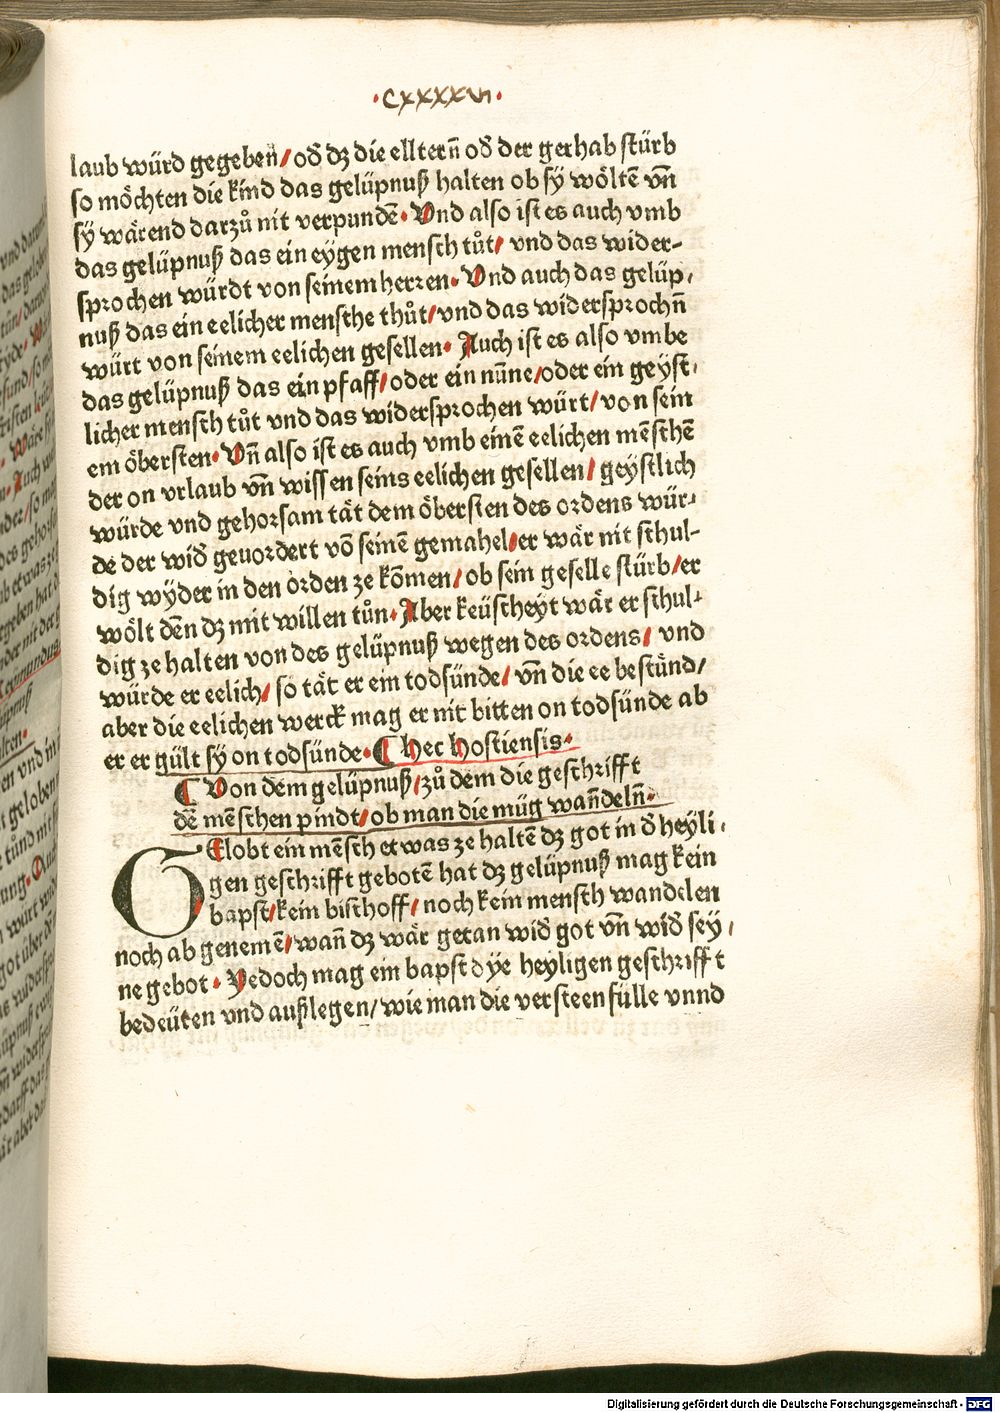 ·cxxxxvi·
laub würd gegeben/ od̄ dz die elltern̄ od̄ der gerhab stürb
so möchten die kind das gelüpnuß halten ob sÿ wöltē vn̄
sÿ wärend darzů nit verpundē· Vnd also ist es auch vmb
das gelüpnuß das ein eÿgen mensch tůt/ vnd das wider-
sprochen würdt von seinem herren· Vnd auch das gelüp-
nuß das ein eelicher mensche thůt/ vnd das widersprochn̄
würt von seinem eelichen gesellen· Auch ist es also vmbe
das gelüpnuß das ein pfaff/ oder ein nūne/ oder ein geyst-
licher mensch tůt vnd das widersprochen würt/ von sein
em öbersten· Vn̄ also ist es auch vmb einē eelichen mēschē
der on vrlaub vn̄ wissen seins eelichen gesellen/ geÿstlich
würde vnd gehorsam tät dem öbersten des ordens wür-
de der wid̄ geuordert vō seinē gemahel/ er wär nit schul-
dig wÿder in den orden ze kōmen/ ob sein geselle stürb/ er
wölt dēn dz mit willen tůn· Aber keüscheyt wär er schul-
dig ze halten von des gelüpnuß wegen des ordens/ vnd
würde er eelich/ so tät er ein todsünde/ vn̄ die ee bestünd/
aber die eelichen werck mag er nit bitten on todsünde ab
er er gült sÿ on todsünde· ¶ hec hostiensis·
¶ Von dem gelüpnuß/ zů dem die geschrifft
dē mēschen pindt/ ob man die müg wan̄deln̄·
GElobt ein mēsch etwas ze haltē dz got in d̄ heyli-
gen geschrifft gebotē hat dz gelüpnuß mag kein
bapst/ kein bischoff/ noch kein mensch wandelen
noch ab genemē/ wan̄ dz wär getan wid̄ got vn̄ wid̄ sey-
ne gebot· Yedoch mag ein bapst dÿe heyligen geschrifft
bedeüten vnd außlegen/ wie man die versteen fülle vnnd
Digitalisierung gefördert durch die Deutsche Forschungsgemeinschaft - DFG